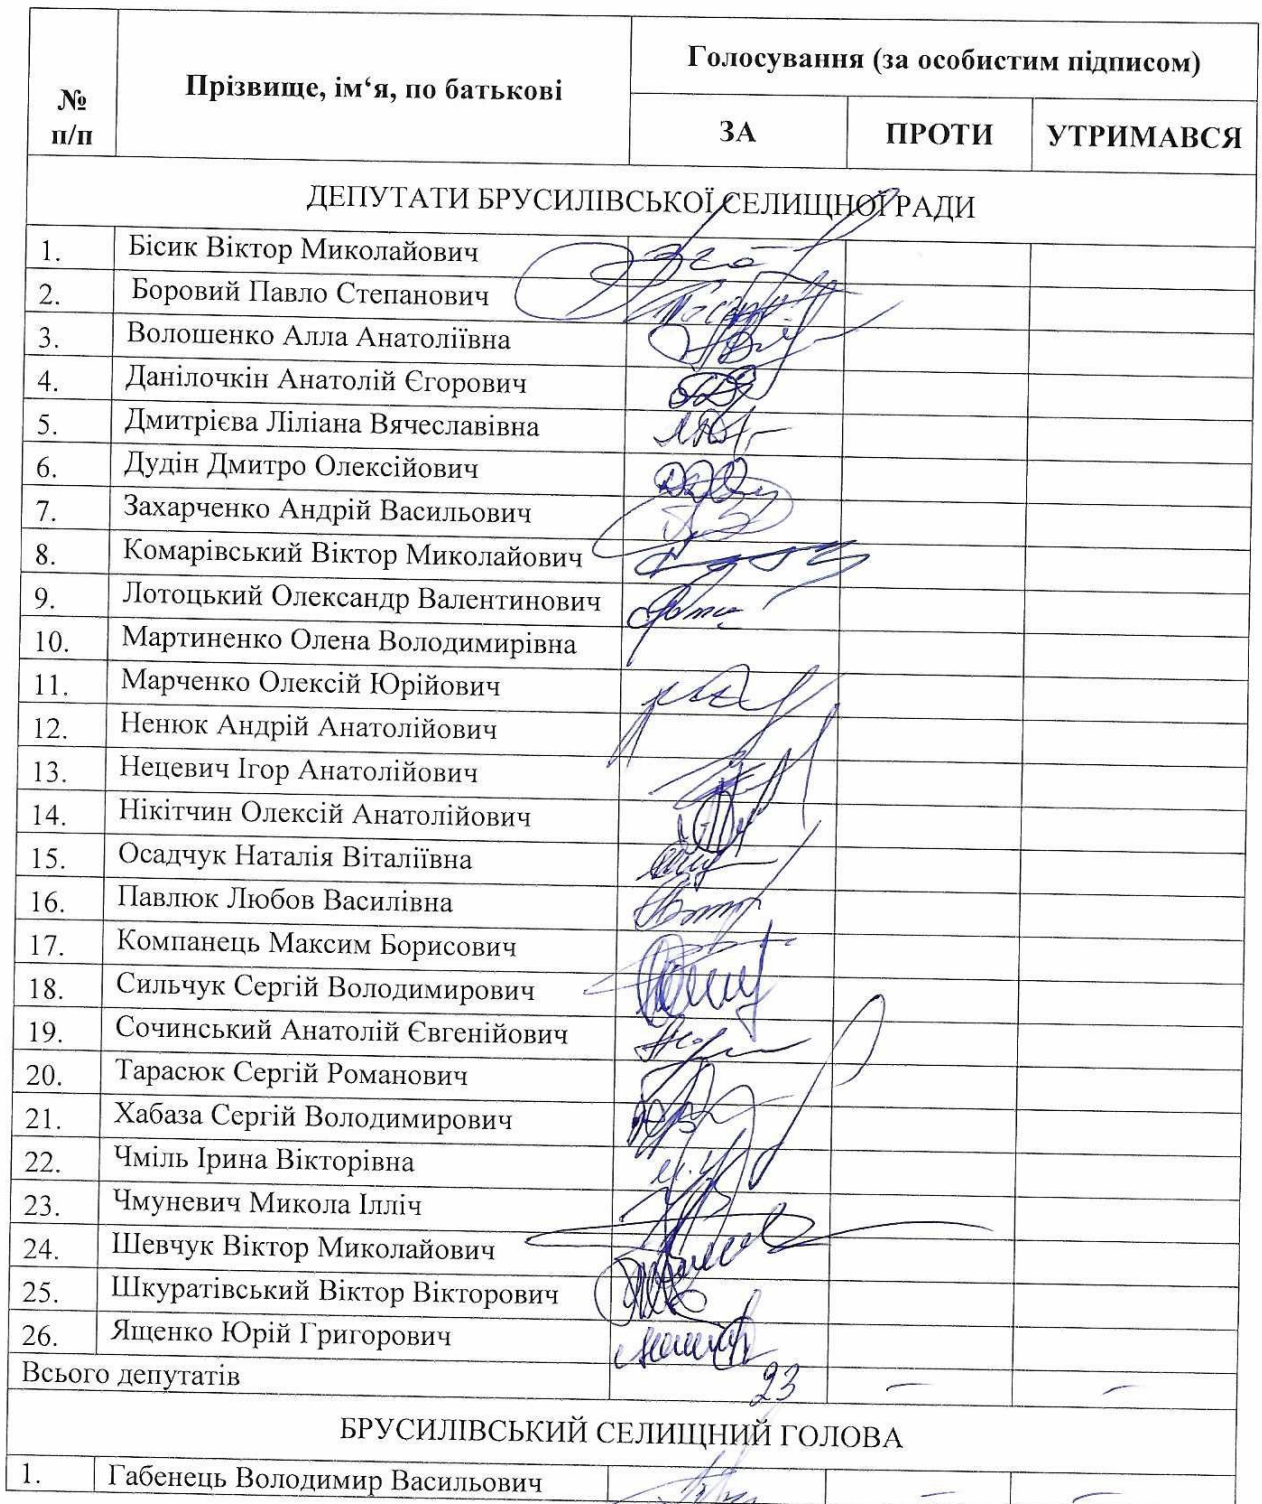 № п/п Прізвище, ім‘я, по батькові Голосування (за особистим підписом)
ЗА ПРОТИ УТРИМАВСЯ
ДЕПУТАТИ БРУСИЛІВСЬКОЇ СЕЛИЩНОЇ РАДИ
1. Бісик Віктор Миколайович
2. Боровий Павло Степанович
3. Волошенко Алла Анатоліївна
4. Данілочкін Анатолій Єгорович
5. Дмитрієва Ліліана Вячеславівна
6. Дудін Дмитро Олексійович
7. Захарченко Андрій Васильович
8. Комарівський Віктор Миколайович
9. Лотоцький Олександр Валентинович
10. Мартиненко Олена Володимирівна
11. Марченко Олексій Юрійович
12. Ненюк Андрій Анатолійович
13. Нецевич Ігор Анатолійович
14. Нікітчин Олексій Анатолійович
15. Осадчук Наталія Віталіївна
16. Павлюк Любов Василівна
17. Компанець Максим Борисович
18. Сильчук Сергій Володимирович
19. Сочинський Анатолій Євгенійович
20. Тарасюк Сергій Романович
21. Хабаза Сергій Володимирович
22. Чміль Ірина Вікторівна
23. Чмуневич Микола Ілліч
24. Шевчук Віктор Миколайович
25. Шкуратівський Віктор Вікторович
26. Ященко Юрій Григорович
Всього депутатів 23 – –
БРУСИЛІВСЬКИЙ СЕЛИЩНИЙ ГОЛОВА
1. Габенець Володимир Васильович – –